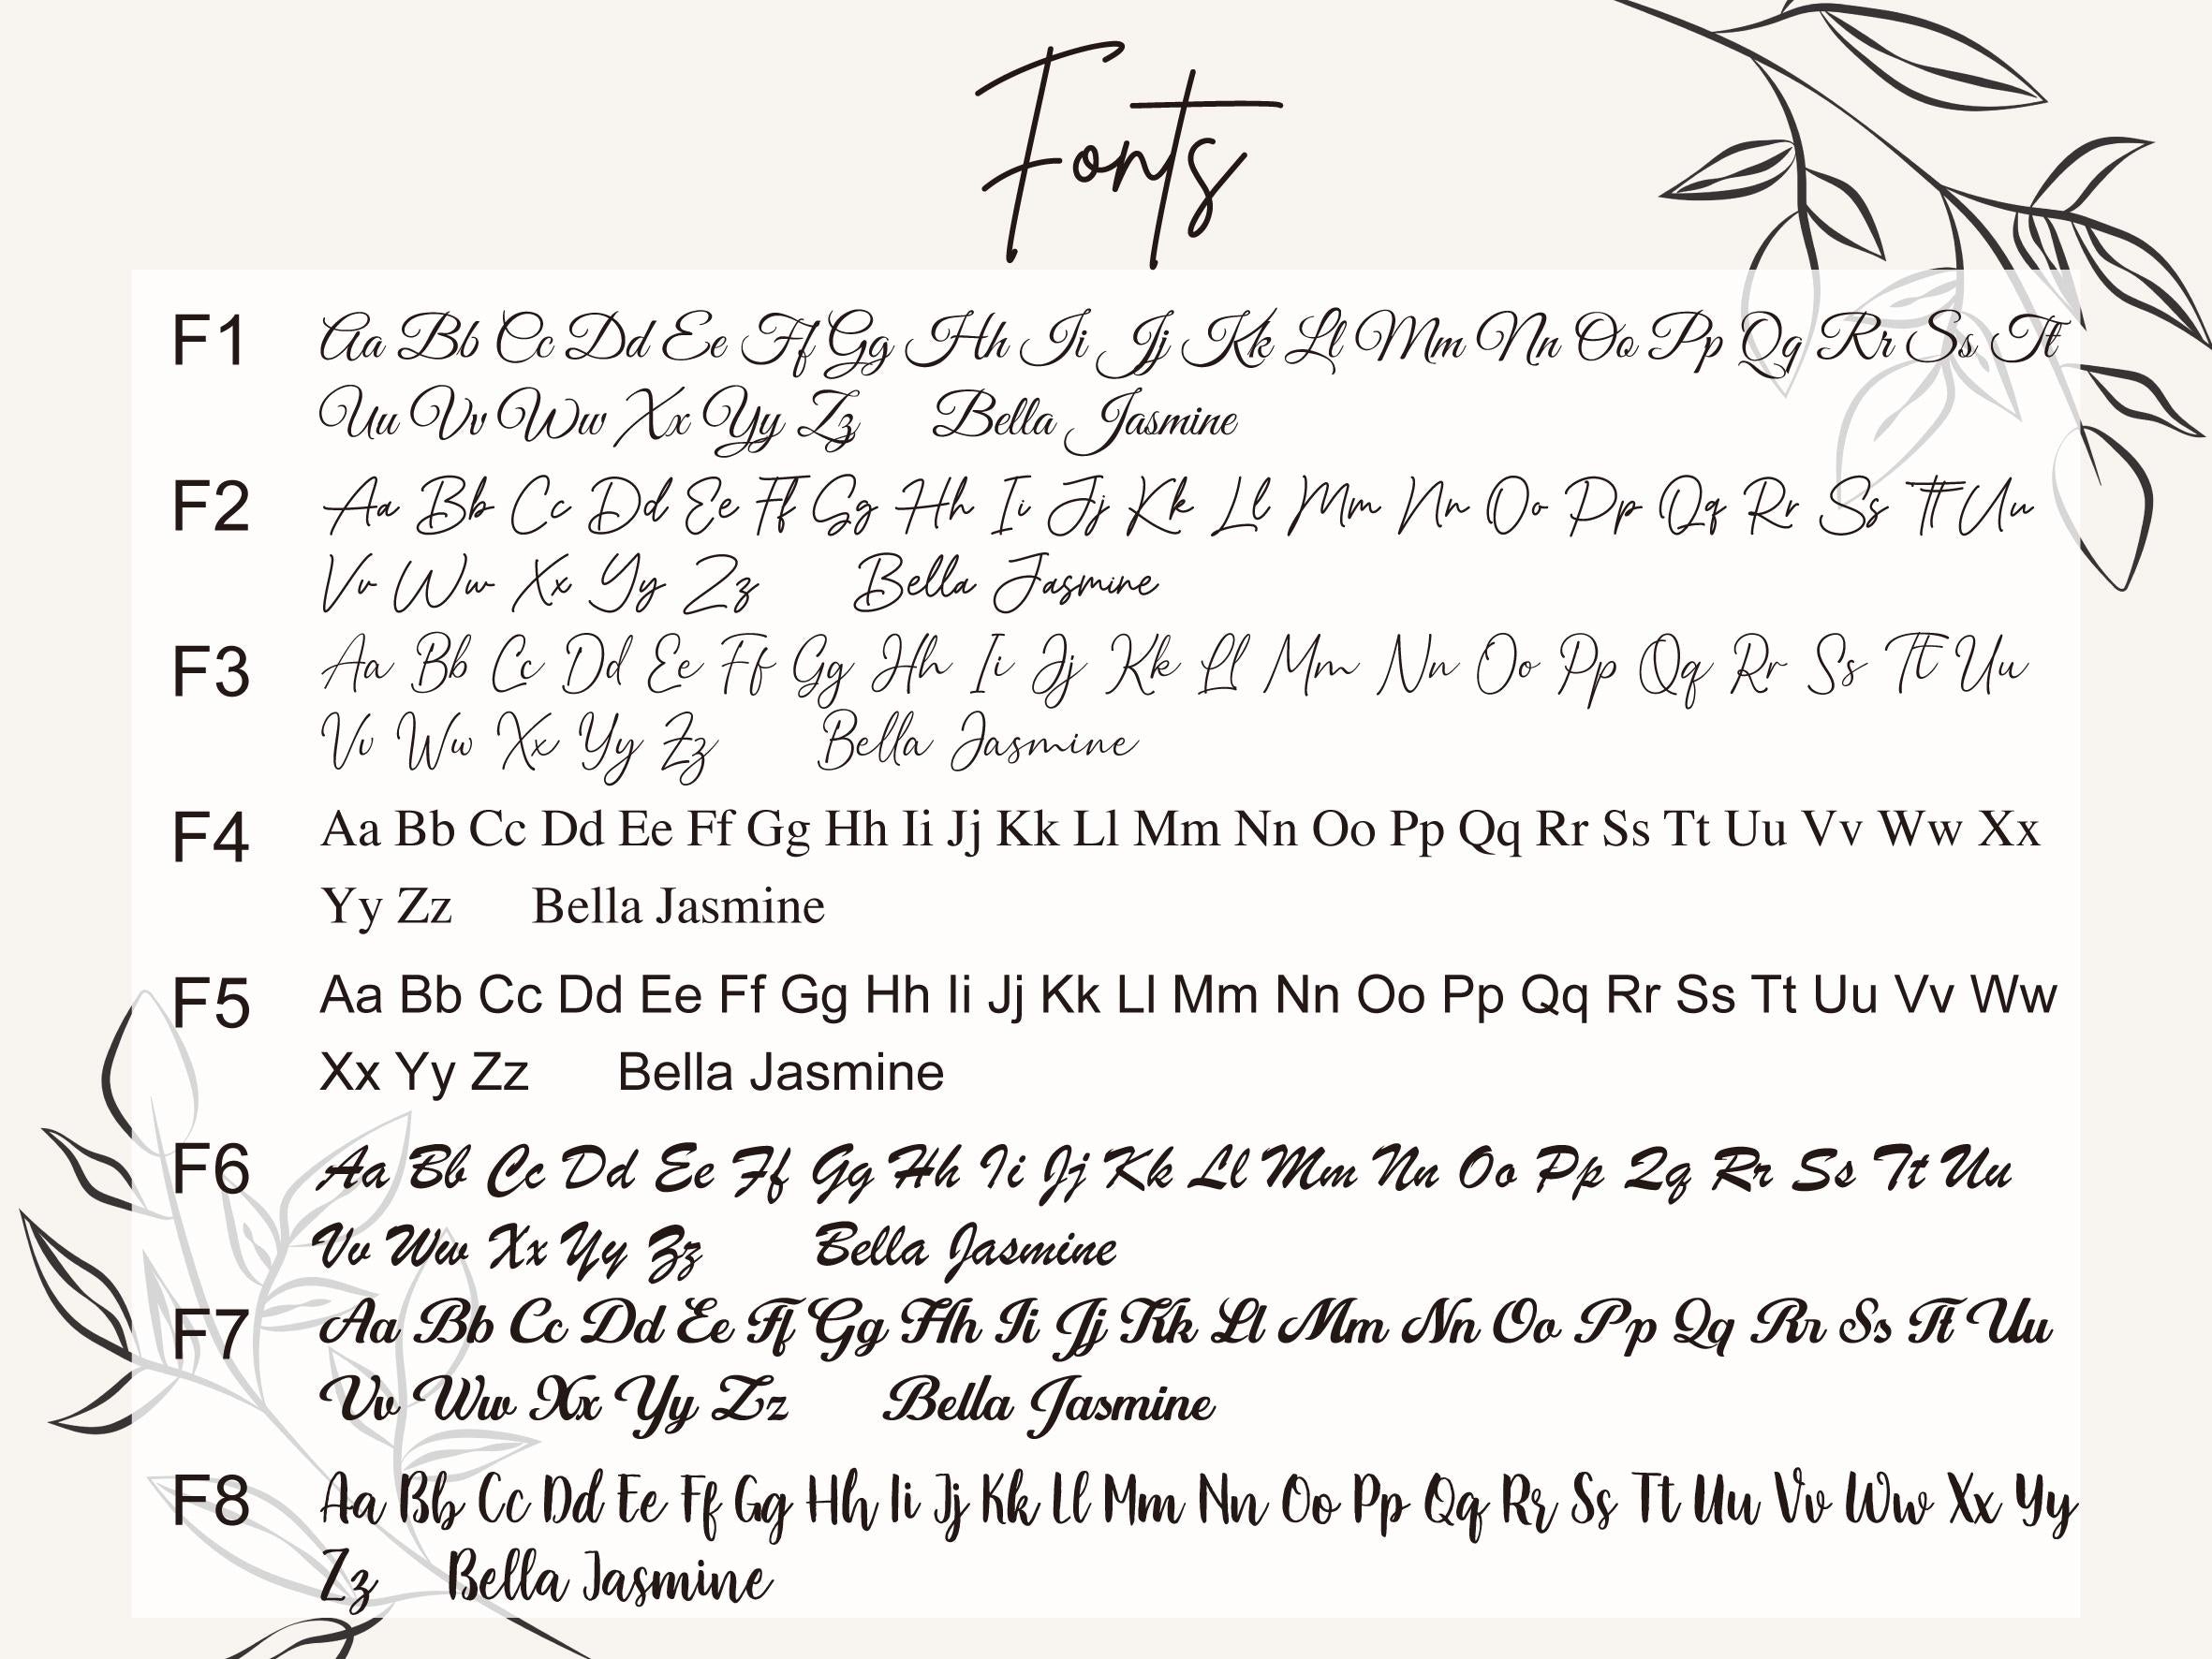 Fonts
F1 Aa Bb Cc Dd Ee Ff Gg Hh Ii Jj Kk Ll Mm Nn Oo Pp Qq Rr Ss Tt
Uu Vv Ww Xx Yy Zz Bella Jasmine
F2 Aa Bb Cc Dd Ee Ff Gg Hh Ii Jj Kk Ll Mm Nn Oo Pp Qq Rr Ss Tt Uu
Vv Ww Xx Yy Zz Bella Jasmine
F3 Aa Bb Cc Dd Ee Ff Gg Hh Ii Jj Kk Ll Mm Nn Oo Pp Qq Rr Ss Tt Uu
Vv Ww Xx Yy Zz Bella Jasmine
F4 Aa Bb Cc Dd Ee Ff Gg Hh Ii Jj Kk Ll Mm Nn Oo Pp Qq Rr Ss Tt Uu Vv Ww Xx
Yy Zz Bella Jasmine
F5 Aa Bb Cc Dd Ee Ff Gg Hh Ii Jj Kk Ll Mm Nn Oo Pp Qq Rr Ss Tt Uu Vv Ww
Xx Yy Zz Bella Jasmine
F6 Aa Bb Cc Dd Ee Ff Gg Hh Ii Jj Kk Ll Mm Nn Oo Pp Qq Rr Ss Tt Uu
Vv Ww Xx Yy Zz Bella Jasmine
F7 Aa Bb Cc Dd Ee Ff Gg Hh Ii Jj Kk Ll Mm Nn Oo Pp Qq Rr Ss Tt Uu
Vv Ww Xx Yy Zz Bella Jasmine
F8 Aa Bb Cc Dd Ee Ff Gg Hh Ii Jj Kk Ll Mm Nn Oo Pp Qq Rr Ss Tt Uu Vv Ww Xx Yy
Zz Bella Jasmine